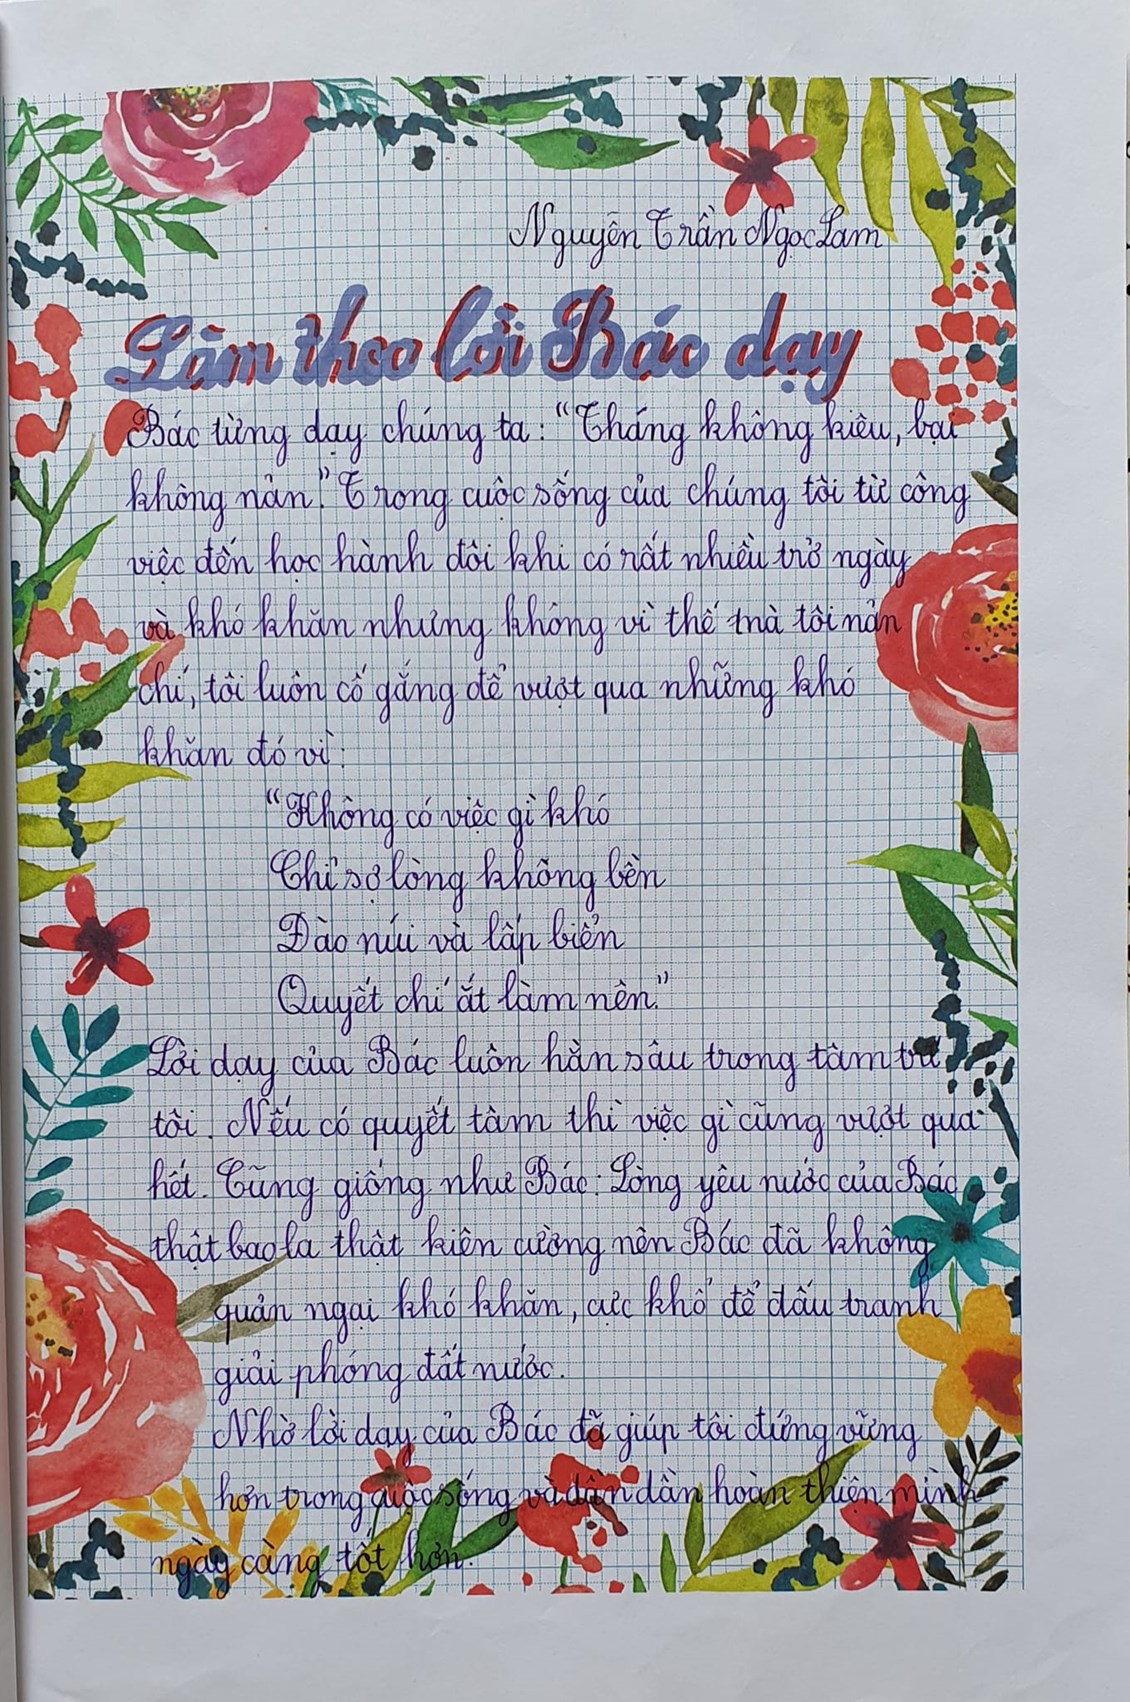 Nguyễn Trần Ngọc Lam
Làm theo lời Bác dạy
Bác từng dạy chúng ta: "Thắng không kiêu, bại
không nản." Trong cuộc sống của chúng tôi từ công
việc đến học hành đôi khi có rất nhiều trở ngày
và khó khăn nhưng không vì thế mà tôi nản
chí, tôi luôn cố gắng để vượt qua những khó
khăn đó vì:
"Không có việc gì khó
Chỉ sợ lòng không bền
Đào núi và lấp biển
Quyết chí ắt làm nên."
Lời dạy của Bác luôn hằn sâu trong tâm trí
tôi. Nếu có quyết tâm thì việc gì cũng vượt qua
hết. Cũng giống như Bác: Lòng yêu nước của Bác
thật bao la thật kiên cường nên Bác đã không
quản ngại khó khăn, cực khổ để đấu tranh
giải phóng đất nước.
Nhờ lời dạy của Bác đã giúp tôi đứng vững
hơn trong cuộc sống và dần dần hoàn thiện mình
ngày càng tốt hơn.